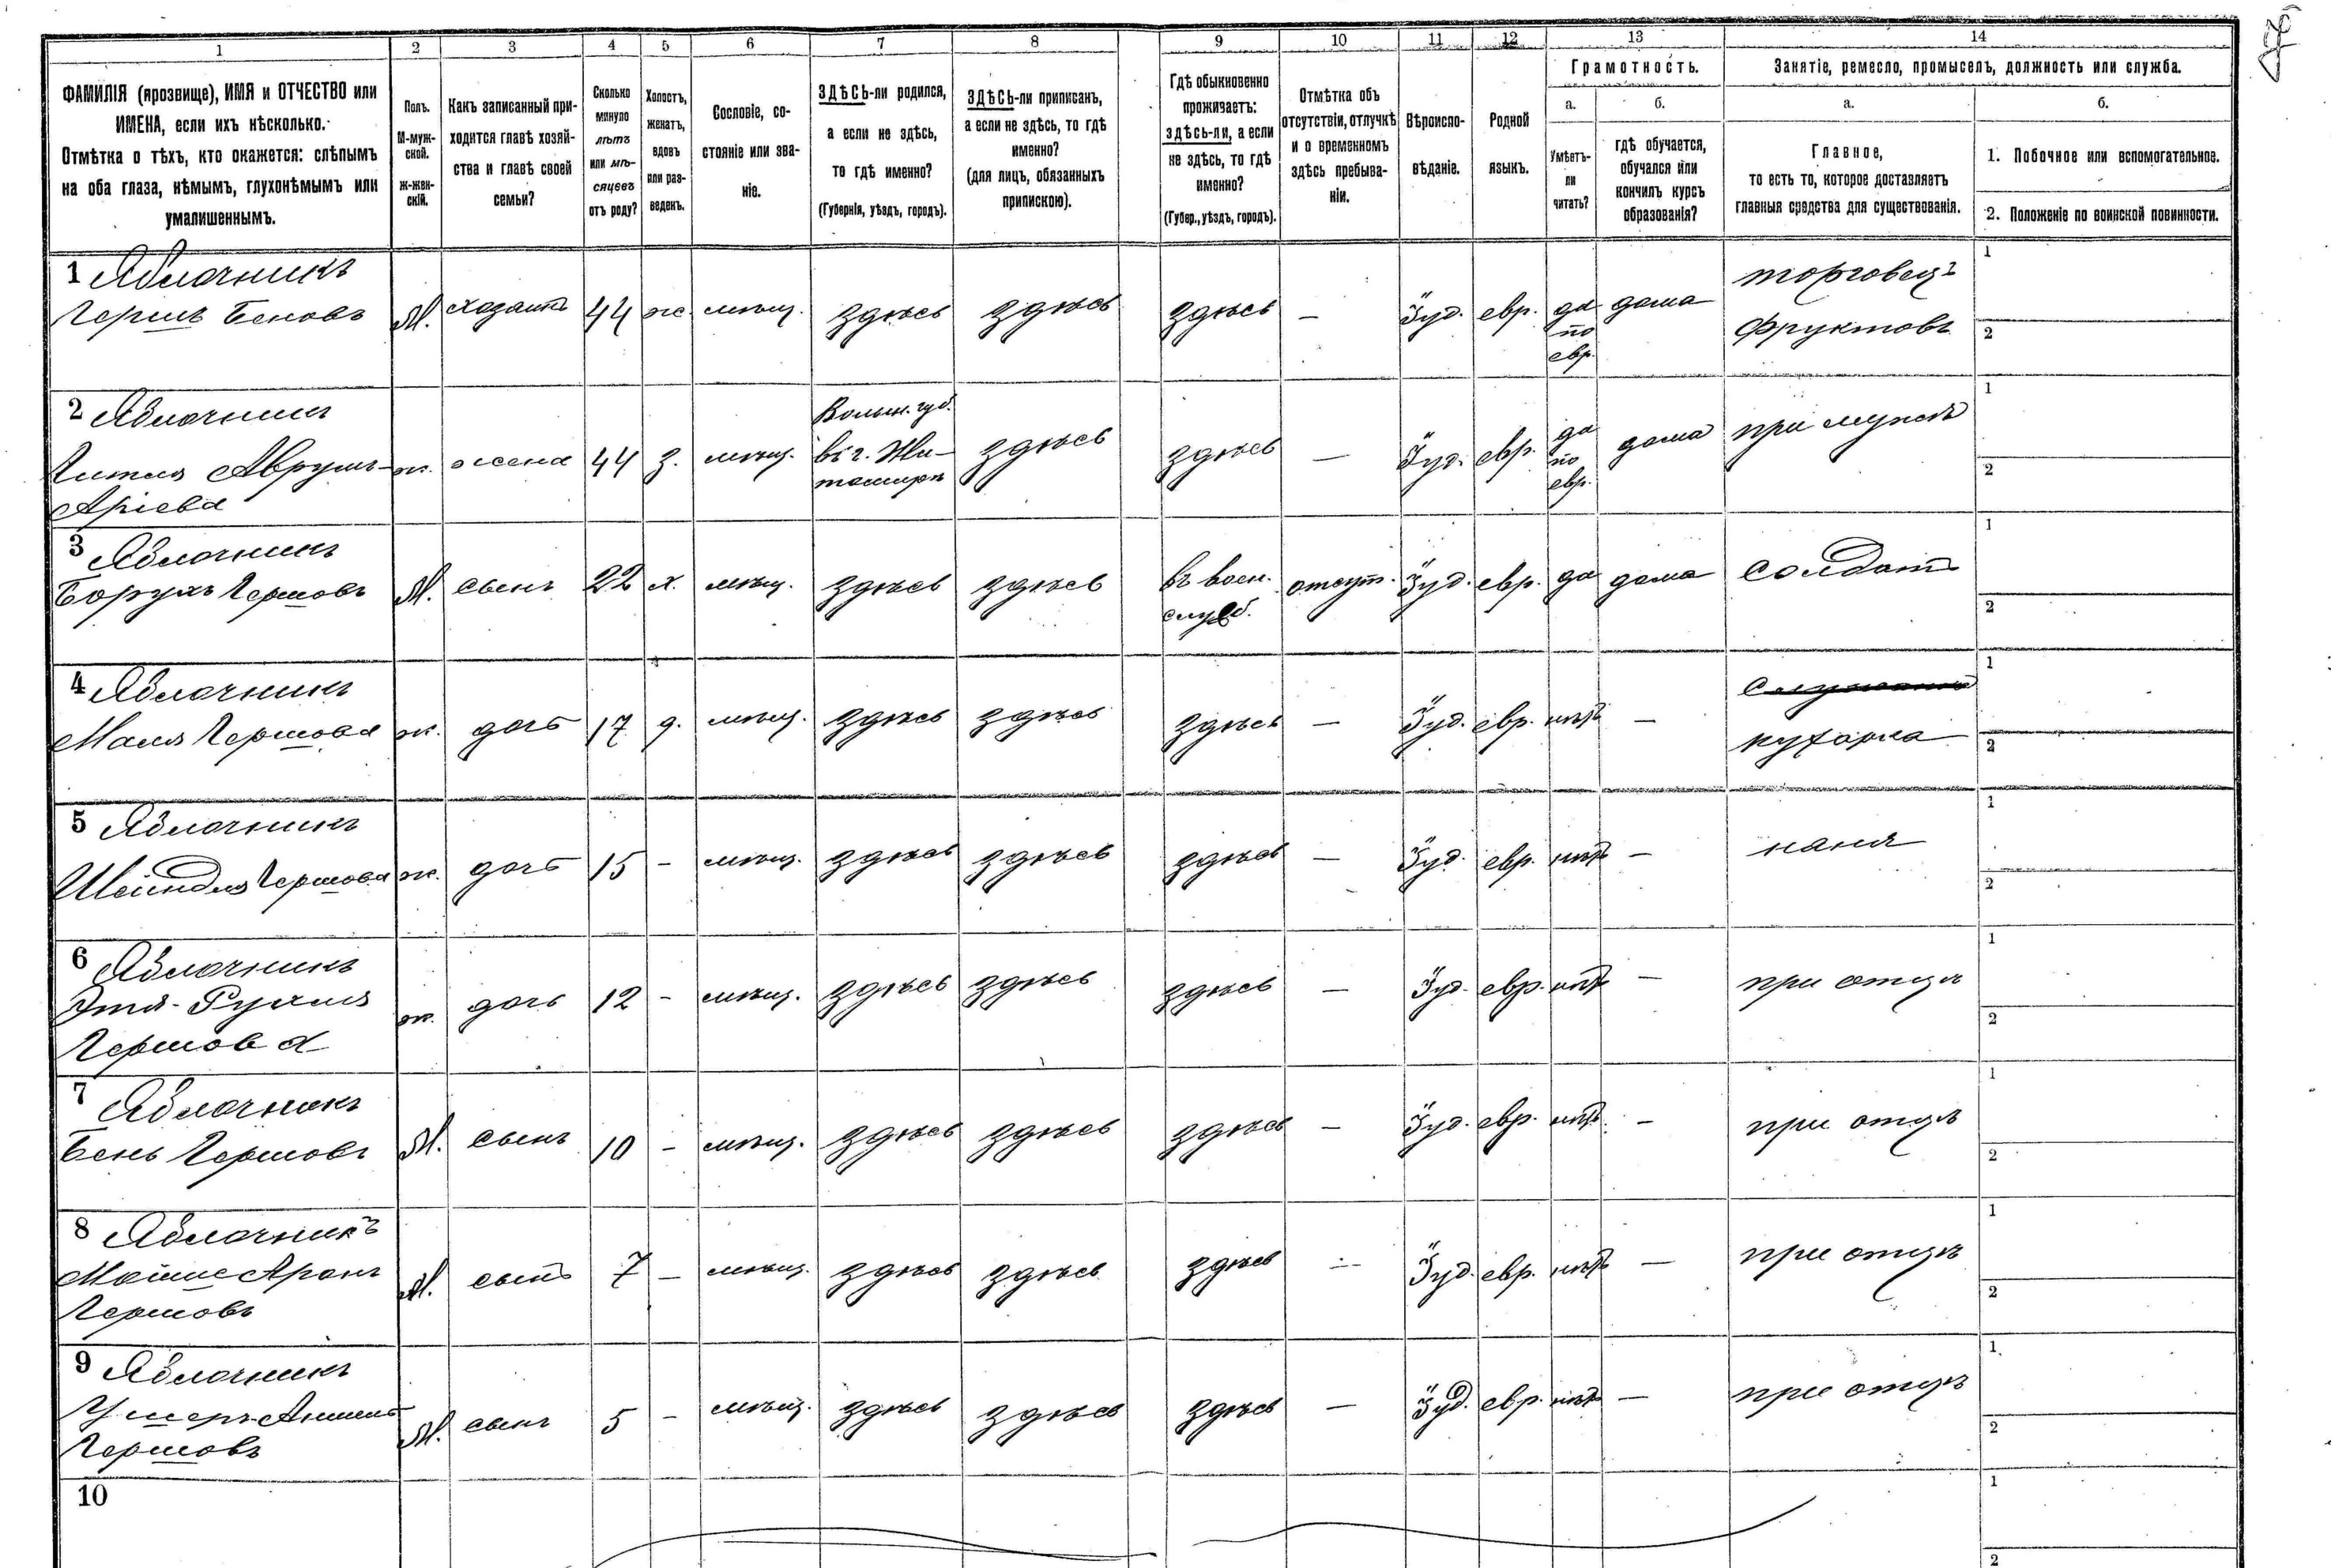 1 2 3 4 5 6 7 8 9 10 11 12 13 14
ФАМИЛІЯ (прозвище), ИМЯ и ОТЧЕСТВО или
ИМЕНА, если ихъ нѣсколько.
Отмѣтка о тѣхъ, кто окажется: слѣпымъ
на оба глаза, нѣмымъ, глухонѣмымъ или
умалишеннымъ.
Полъ.
М-муж-
ской.
Ж-жен-
скій.
Какъ записанный при-
ходится главѣ хозяй-
ства и главѣ своей
семьи?
Сколько
минуло
лѣтъ
или мѣ-
сяцевъ
отъ роду?
Холостъ,
женатъ,
вдовъ
или раз-
веденъ.
Сословіе, со-
стояніе или зва-
ніе.
ЗДѢСЬ-ли родился,
а если не здѣсь,
то гдѣ именно?
(Губернія, уѣздъ, городъ).
ЗДѢСЬ-ли приписанъ,
а если не здѣсь, то гдѣ
именно?
(для лицъ, обязанныхъ
припискою).
Гдѣ обыкновенно
проживаетъ:
здѣсь-ли, а если
не здѣсь, то гдѣ
именно?
(Губер., уѣздъ, городъ).
Отмѣтка объ
отсутствіи, отлучкѣ
и о временномъ
здѣсь пребыва-
ніи.
Вѣроиспо-
вѣданіе.
Родной
языкъ.
Грамотность.
а.
Умѣетъ-
ли
читать?
б.
гдѣ обучается,
обучался или
кончилъ курсъ
образованія?
Занятіе, ремесло, промыселъ, должность или служба.
а.
Главное,
то есть то, которое доставляетъ
главныя средства для существованія.
б.
1. Побочное или вспомогательное.
2. Положеніе по воинской повинности.
1 Яблочникъ
Гершъ Беновъ
М.
хозаинъ
44
ж.
мѣщ.
здѣсь
здѣсь
здѣсь
—
Іуд.
евр.
да
по
евр.
дома
торговецъ
фруктовъ
1
2
2 Яблочникъ
Гитля Аврумъ-
Аріева
ж.
жена
44
з.
мѣщ.
Волын. губ.
въ г. Жи-
томирѣ
здѣсь
здѣсь
—
Іуд.
евр.
да
по
евр.
дома
при мужѣ
1
2
3 Яблочникъ
Борухъ Гершовъ
М.
сынъ
22
х.
мѣщ.
здѣсь
здѣсь
въ воен.
служб.
отсут.
Іуд.
евр.
да
дома
солдатъ
1
2
4 Яблочникъ
Маля Гершова
ж.
дочь
17
д.
мѣщ.
здѣсь
здѣсь
здѣсь
—
Іуд.
евр.
нѣтъ
—
кухарка
1
2
5 Яблочникъ
Шейндля Гершова
ж.
дочь
15
-
мѣщ.
здѣсь
здѣсь
здѣсь
—
Іуд.
евр.
нѣтъ
—
няня
1
2
6 Яблочникъ
Этя-Рухля
Гершова
ж.
дочь
12
-
мѣщ.
здѣсь
здѣсь
здѣсь
—
Іуд.
евр.
нѣтъ
—
при отцѣ
1
2
7 Яблочникъ
Бень Гершовъ
М.
сынъ
10
-
мѣщ.
здѣсь
здѣсь
здѣсь
—
Іуд.
евр.
нѣтъ
-
при отцѣ
1
2
8 Яблочникъ
Мойше Аронъ
Гершовъ
М.
сынъ
7
—
мѣщ.
здѣсь
здѣсь
здѣсь
—
Іуд.
евр.
нѣтъ
—
при отцѣ
1
2
9 Яблочникъ
Ушеръ-Аншель
Гершовъ
М.
сынъ
5
-
мѣщ.
здѣсь
здѣсь
здѣсь
—
Іуд.
евр.
нѣтъ
—
при отцѣ
1
2
10
1
2